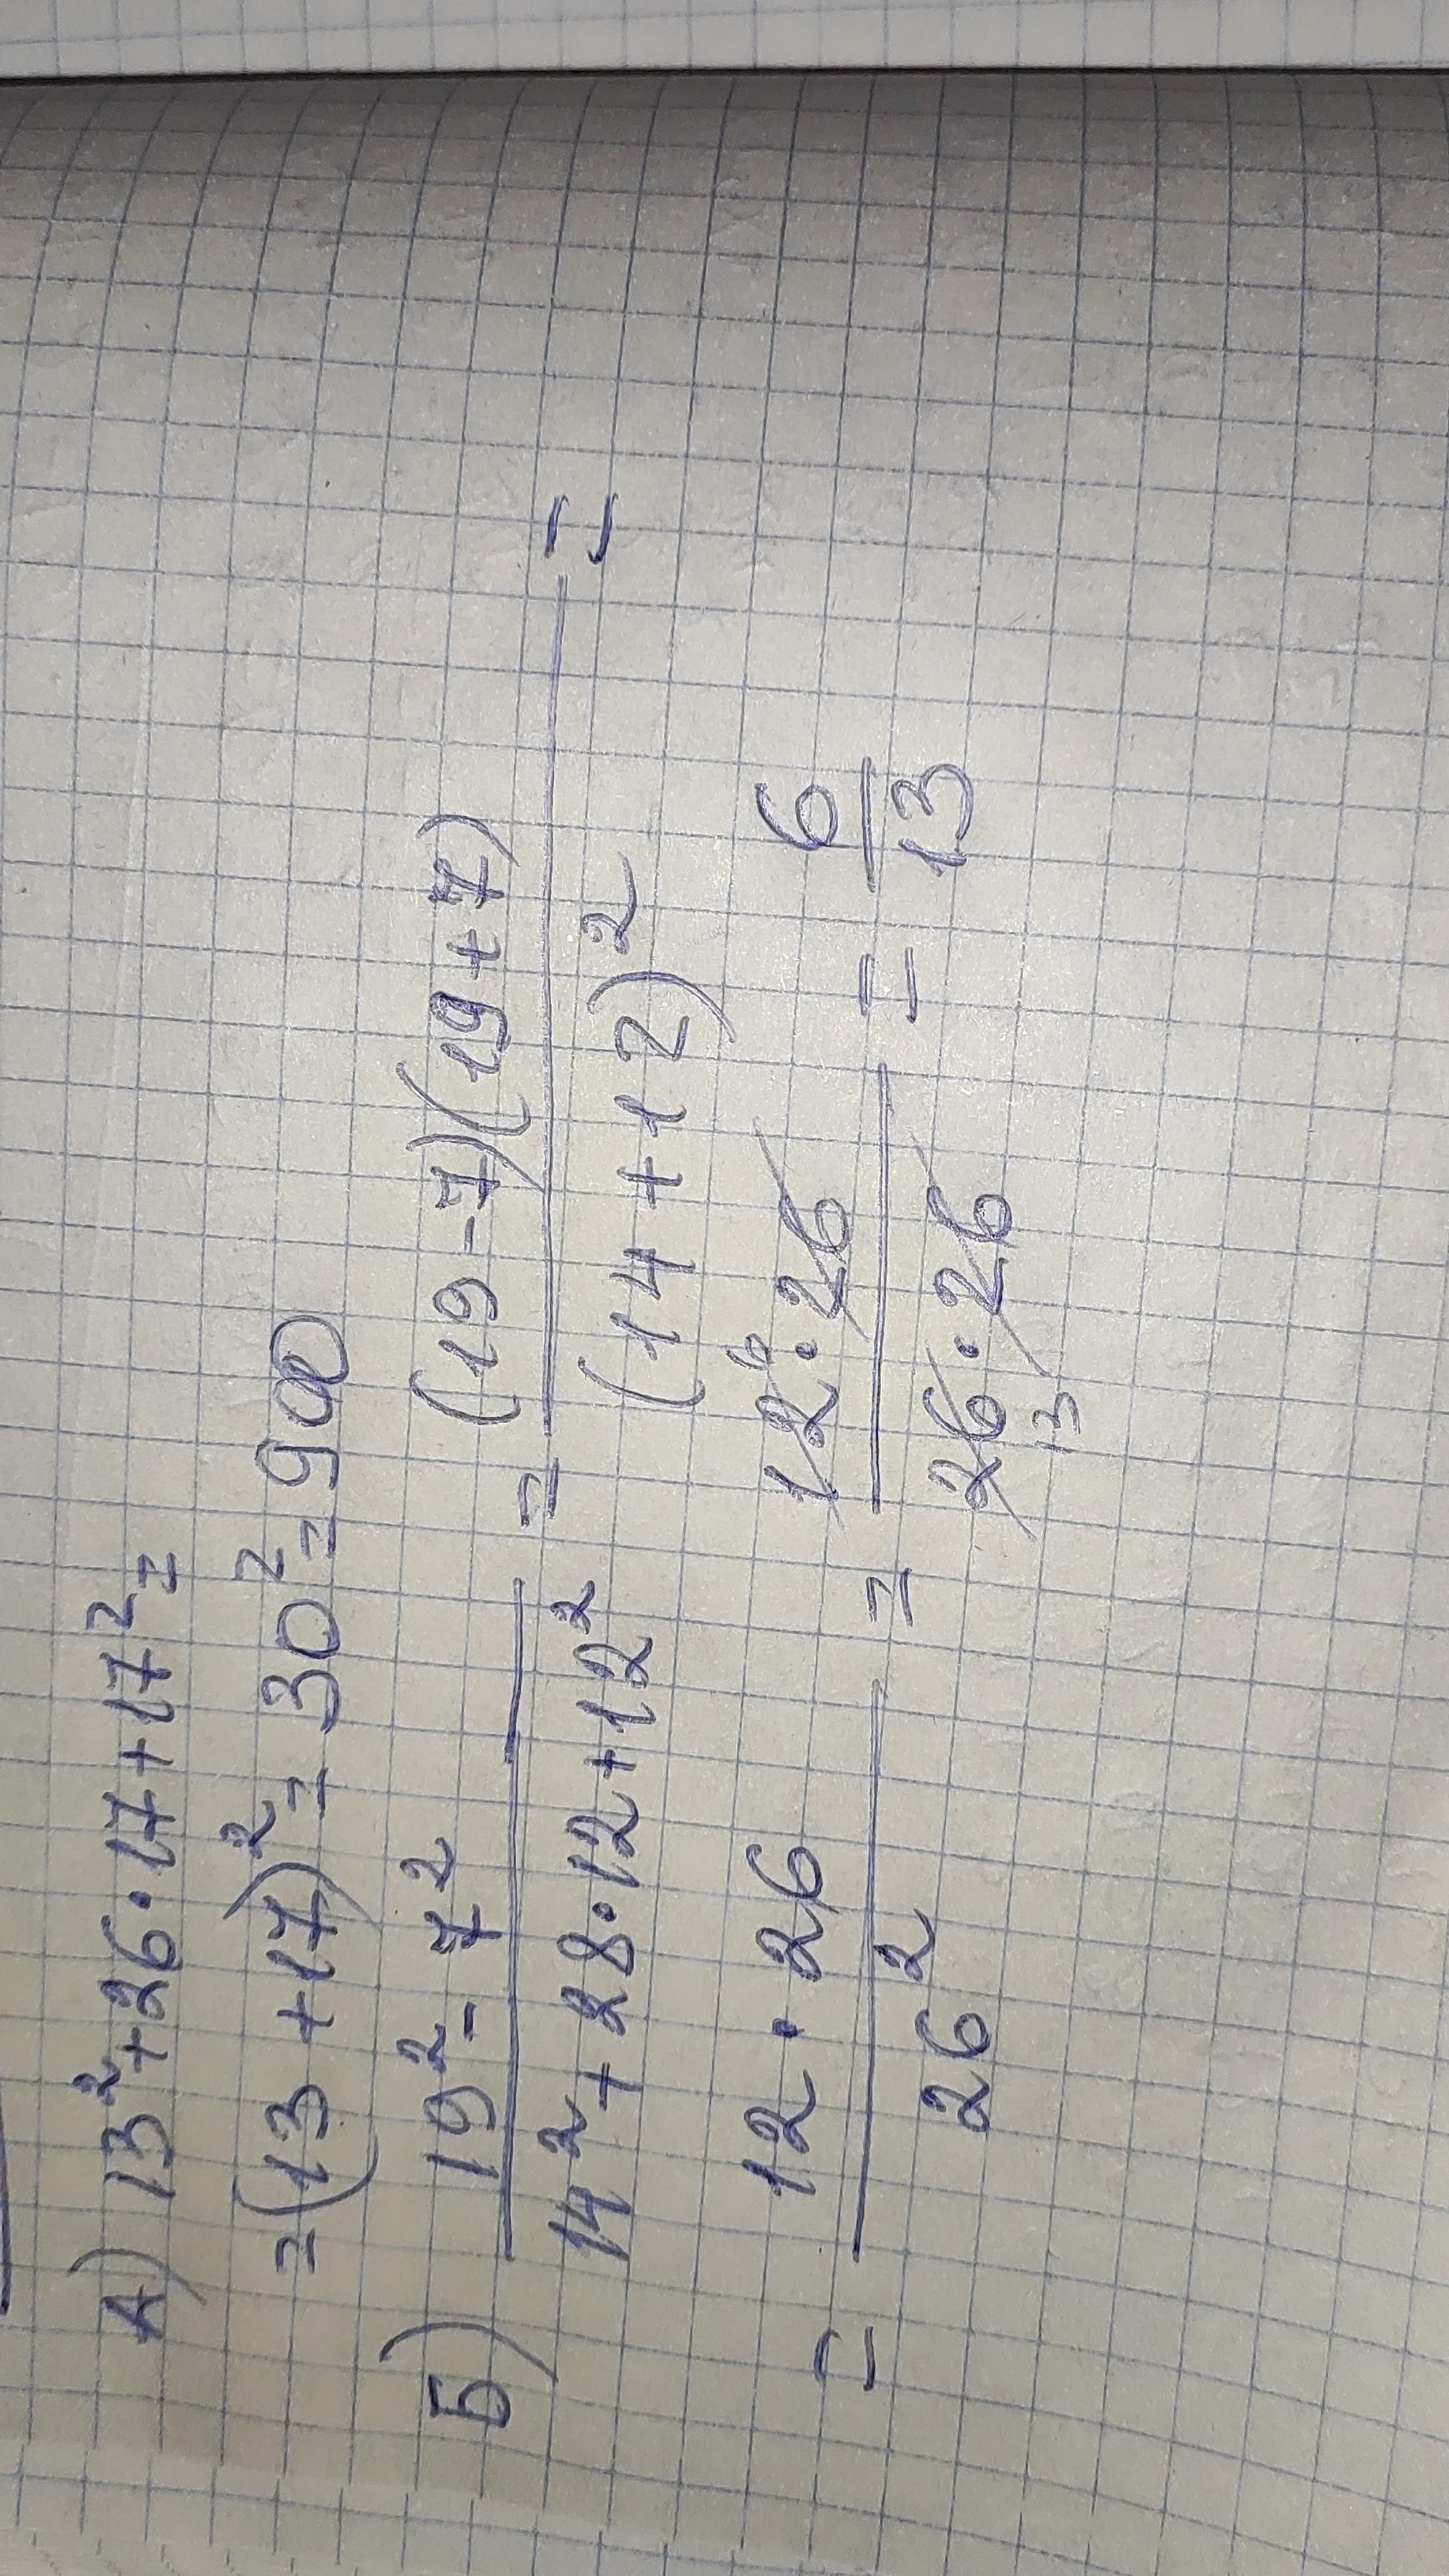 А) 13²+26·17+17²=
=(13+17)²=30²=900
Б) \frac{19²-7²}{14²+28·12+12²} = \frac{(19-7)(19+7)}{(14+12)²} =
= \frac{12·26}{26²} = \frac{12⁶·26}{26₁₃·26} = \frac{6}{13}